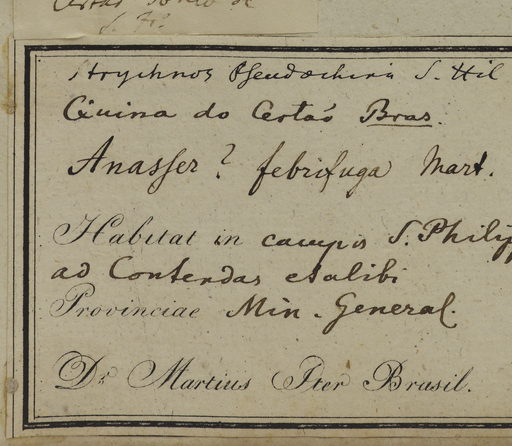 Certão
S. Fr.
Strychnos Pseudochina S. Hil
Quina do Certaõ Bras.
Anasser? febrifuga Mart.
Habitat in campis S. Philipp
ad Contendas et alibi
Provinciae Min. General.
Dr. Martius Iter Brasil.